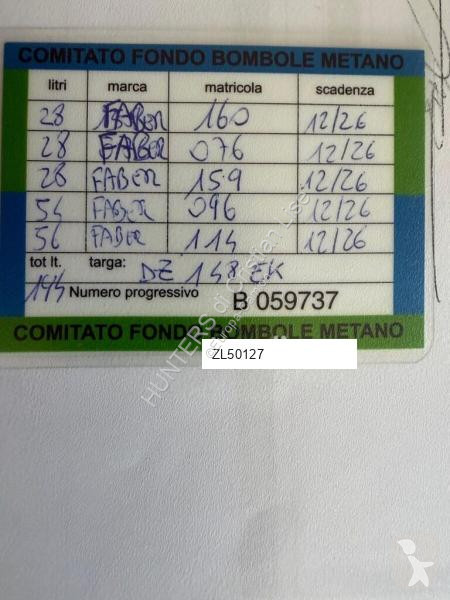 COMITATO FONDO BOMBOLE METANO
litri marca matricola scadenza
28 FABER 160 12/26
28 FABER 076 12/26
28 FABER 159 12/26
54 FABER 096 12/26
56 FABER 114 12/26
tot lt. targa: DZ 148 EK
194 Numero progressivo B 059737
COMITATO FONDO BOMBOLE METANO
ZL50127
HUNTERS di Cristian